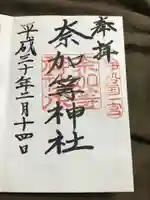 奉拝
奈加等神社
平成三十年二月十四日